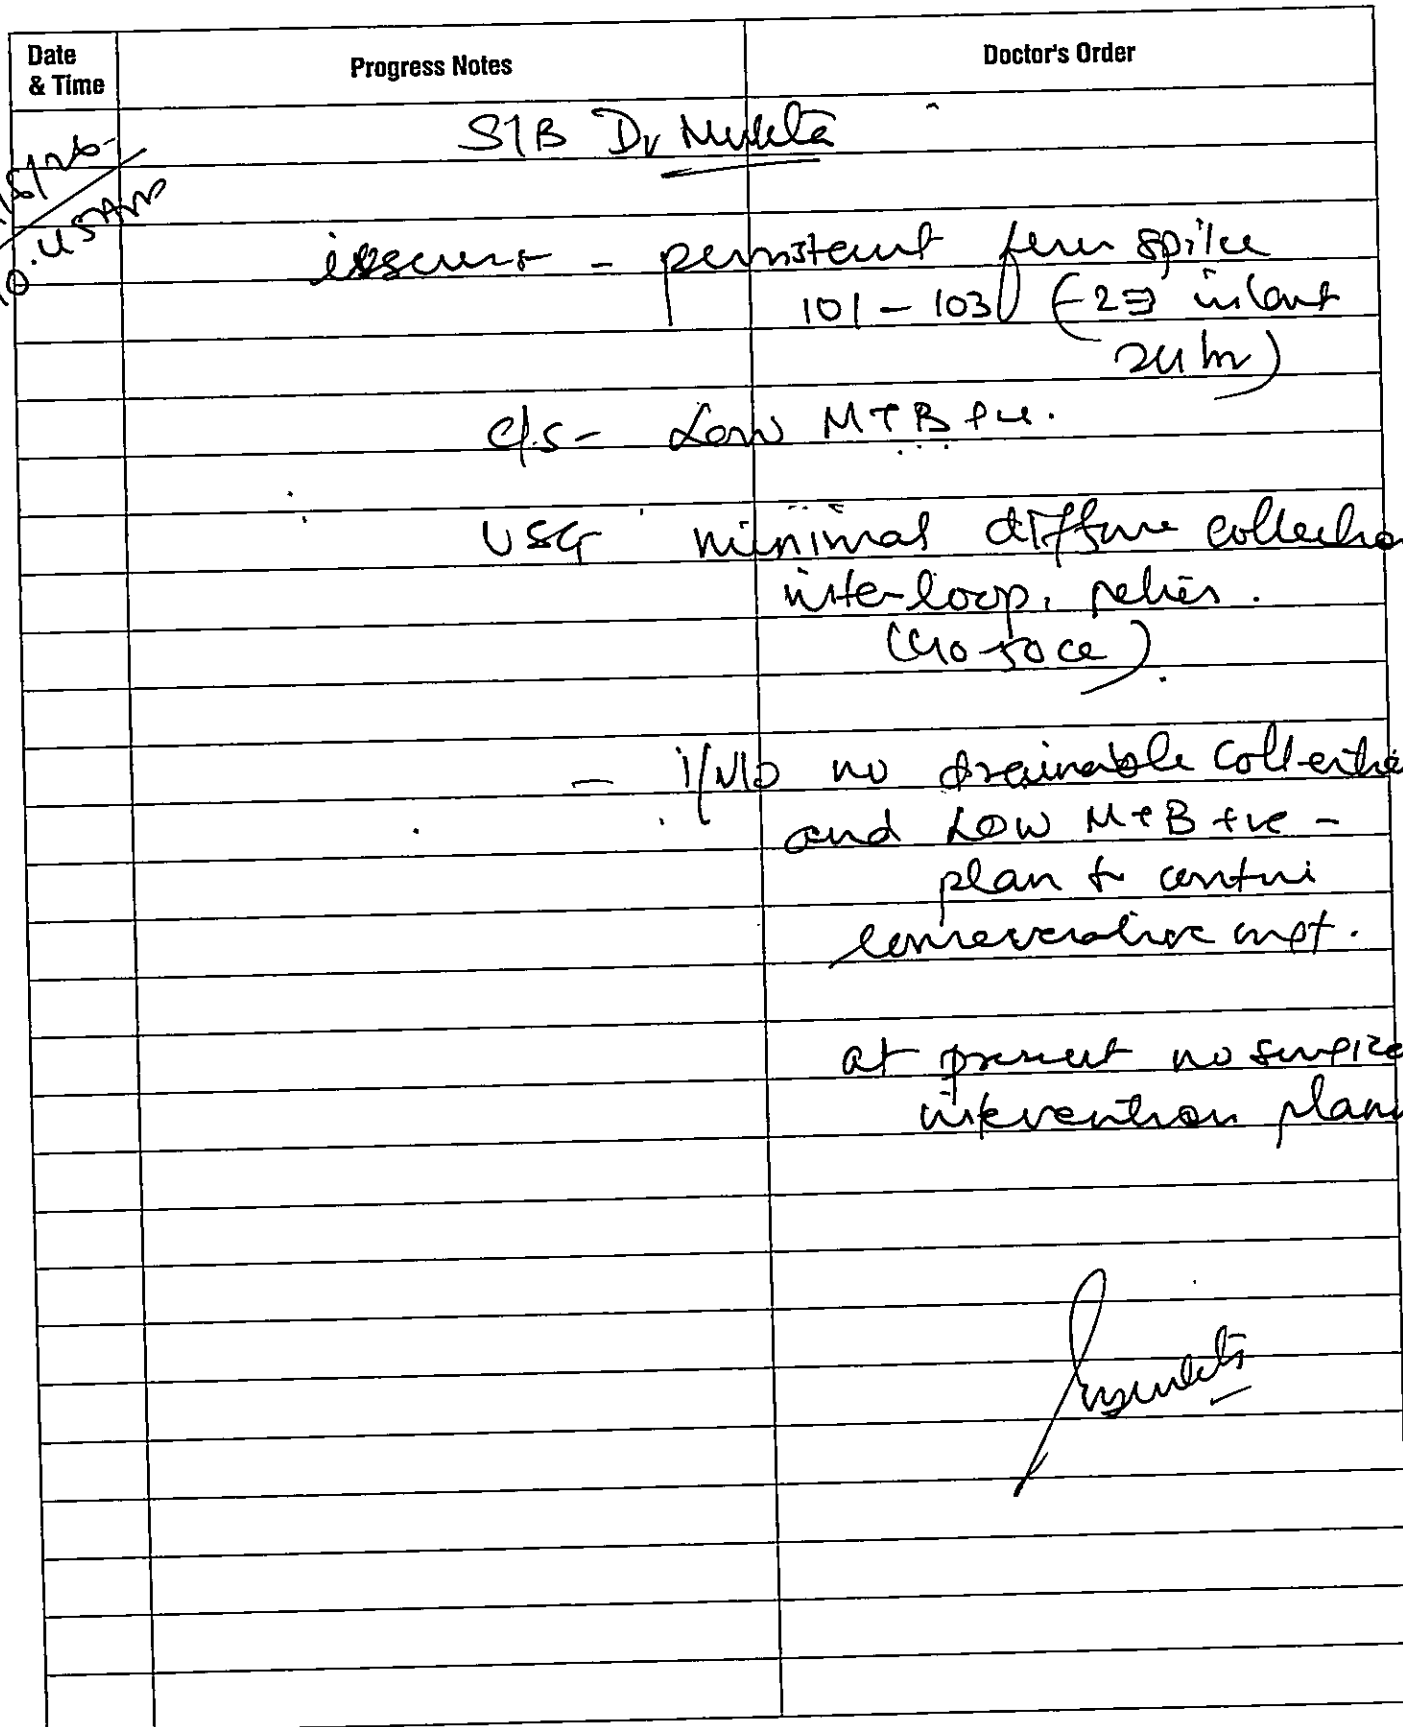 Date & Time
Progress Notes
Doctor's Order
S/B Dr Mukta
10.45AM
issues - persistent fever spike
101 - 103 (2-3 in last
24 hr)
c/s - Low MTB +ve.
USG minimal diffuse collection
inter-loop, pelvis.
(40-50cc).
- i/v/o no drainable collection
and Low MTB +ve -
plan to continue
conservative mgt.
at present no surgical
intervention plann